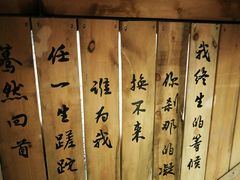 我终生的等候
你刹那的凝
换不来
谁为我
任一生蹉跎
蓦然回首